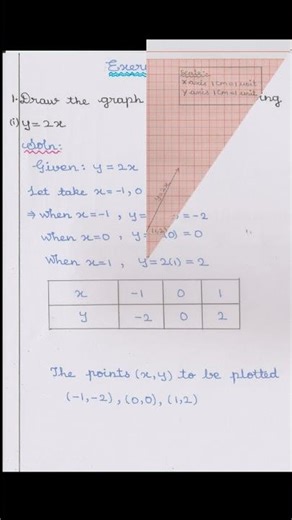 Exer
Scale:
x axis 1cm=1unit
y axis 1cm=1unit
1. Draw the graph ing
(i) y=2x
Soln:
Given: y=2x
Let take x=-1, 0
⇒ when x=-1, y= =-2
y=2x
(1,2)
when x=0, y= (0) =0
When x=1, y=2(1)=2
x -1 0 1
y -2 0 2
The points (x,y) to be plotted
(-1,-2), (0,0), (1,2)